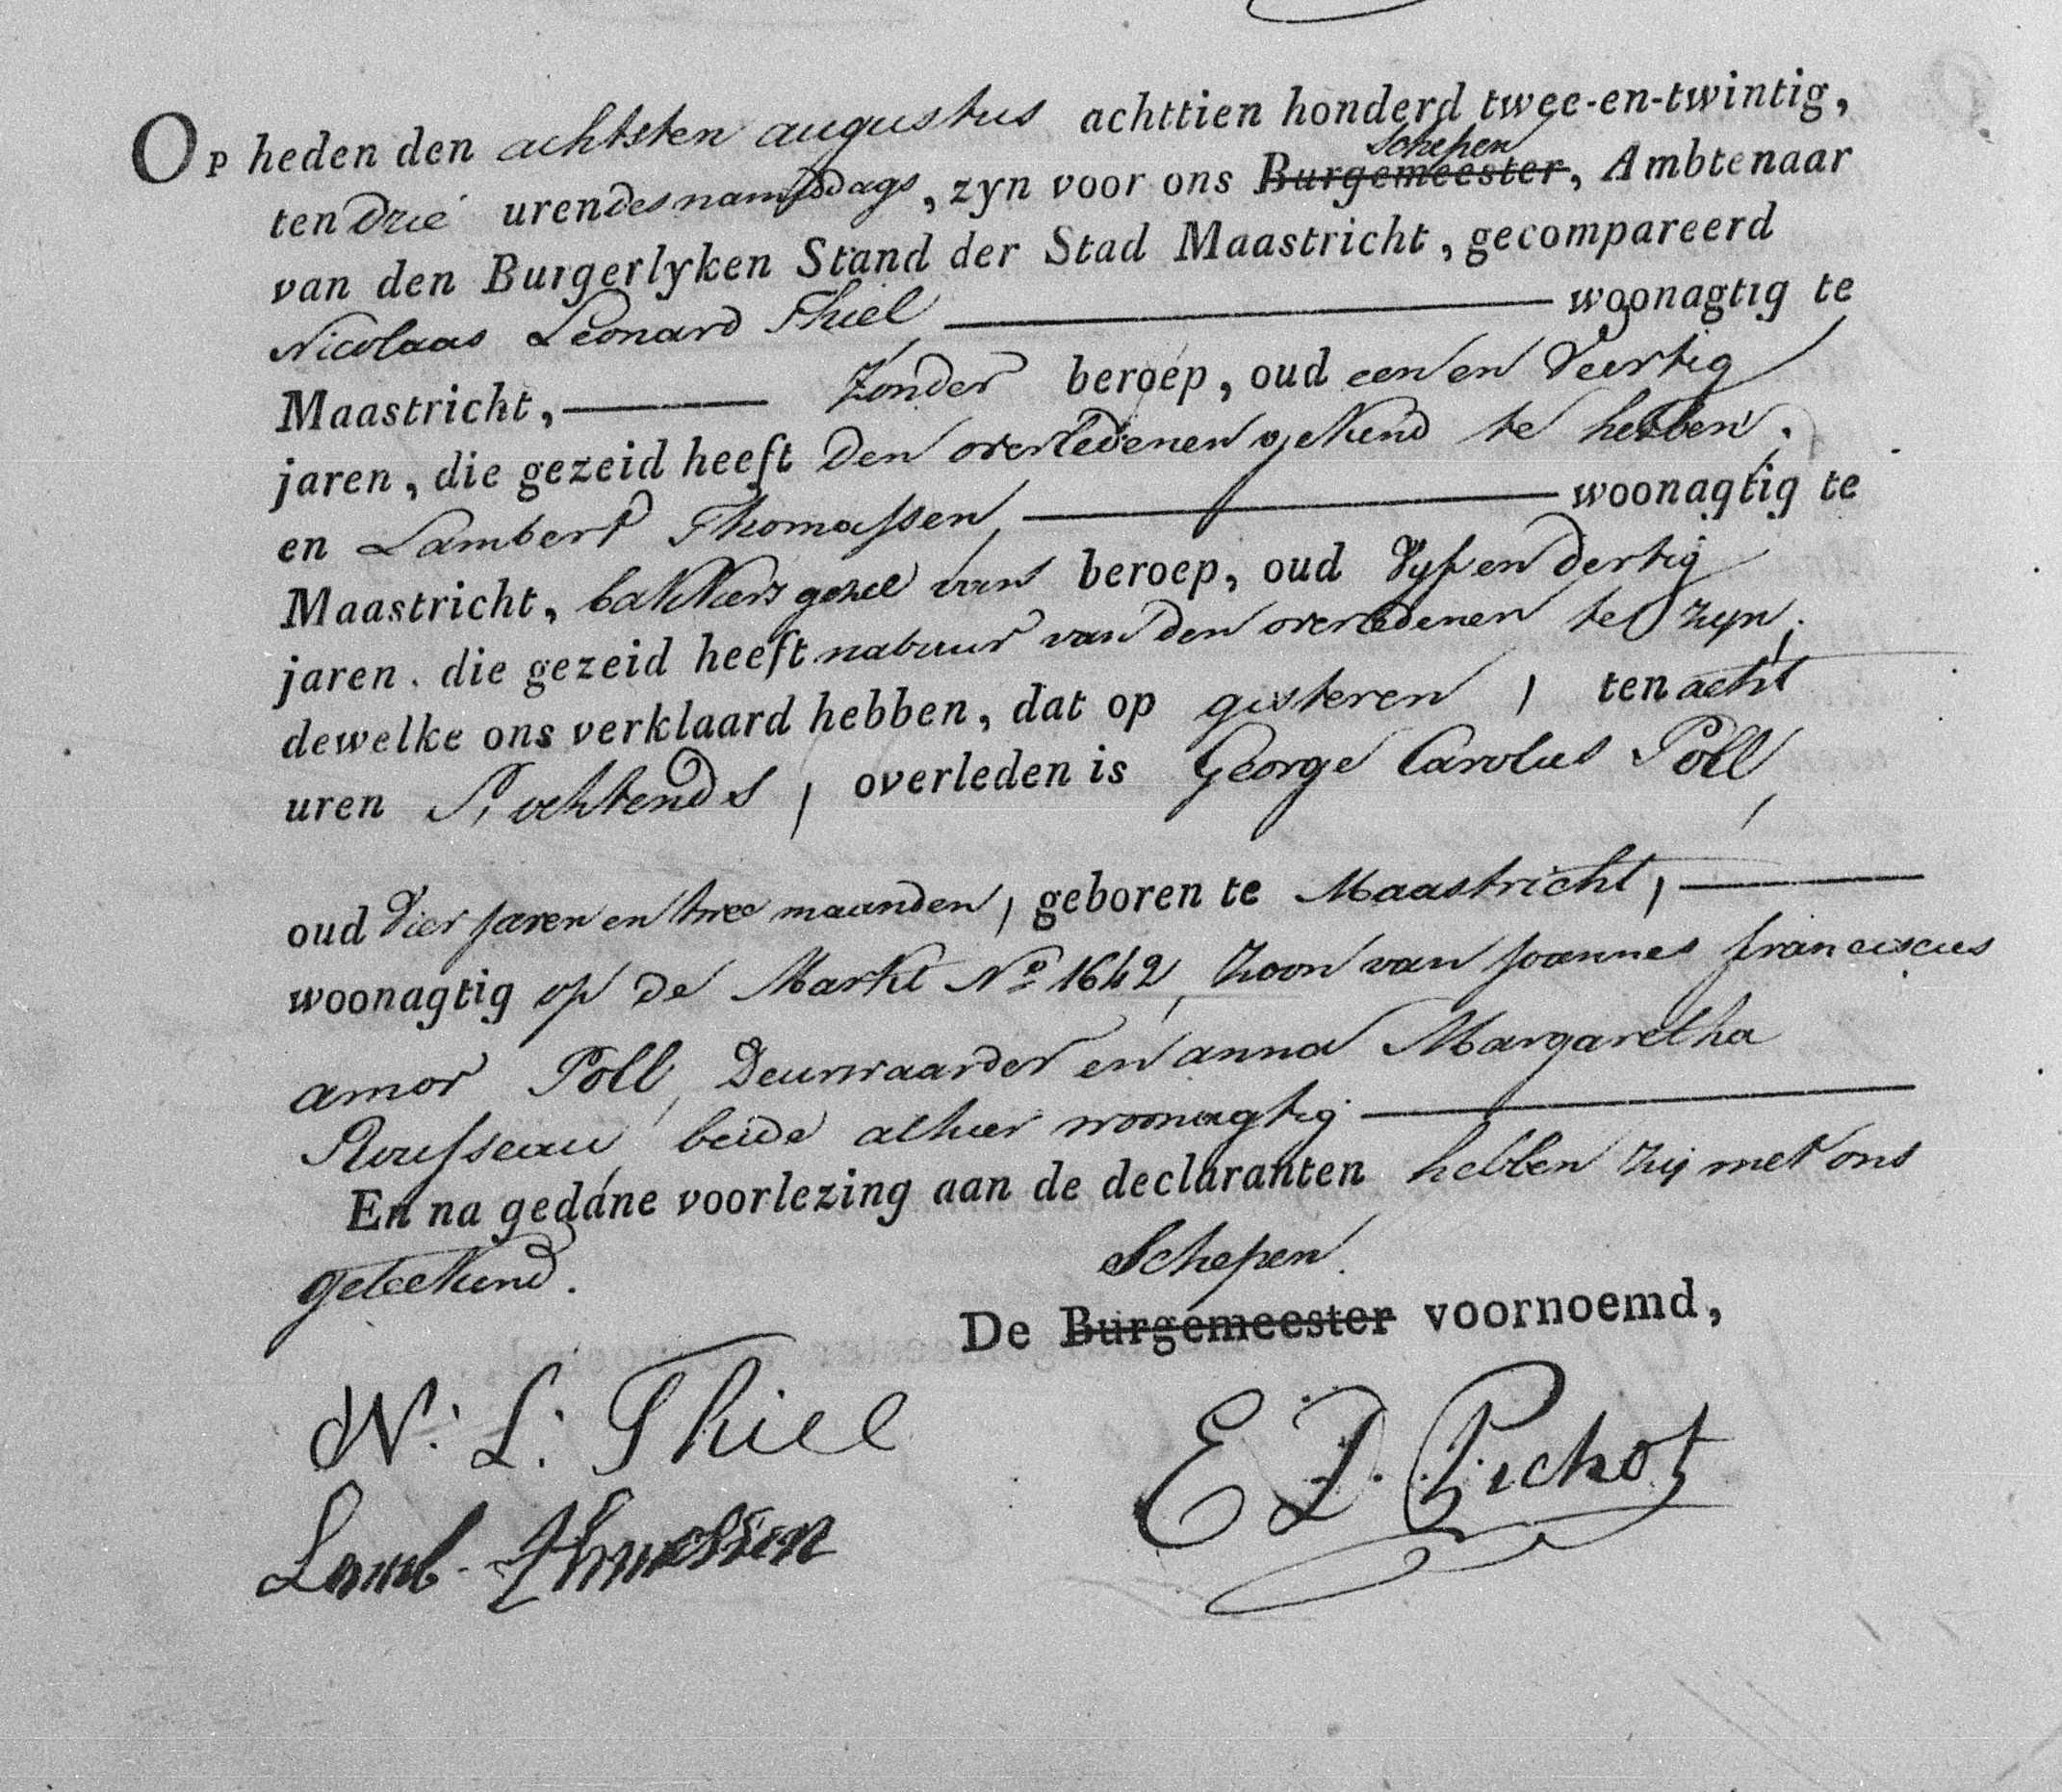 Op heden den achtsten augustus achttien honderd twee-en-twintig,
Schepen
ten drie uren des namiddags, zyn voor ons Burgemeester, Ambtenaar
van den Burgerlyken Stand der Stad Maastricht, gecompareerd
Nicolaas Leonard Thiel woonagtig te
Maastricht, zonder beroep, oud een en Veertig
jaren, die gezeid heeft den overledenen gekend te hebben,
en Lambert Thomassen, woonagtig te
Maastricht, bakkers gezel van beroep, oud Vyf en dertig
jaren. die gezeid heeft nabuur van den overledenen te zyn,
dewelke ons verklaard hebben, dat op gisteren, ten acht
uren S'ochtends, overleden is George Carolus Poll,
oud Vier jaren en twee maanden, geboren te Maastricht,
woonagtig op de Markt No 1642, zoon van joannes franciscus
amor Poll, Deurwaarder en anna Margaretha
Rousseau, beide alhier woonagtig
En na gedane voorlezing aan de declaranten hebben zij met ons
geteekend.
Schepen.
De Burgemeester voornoemd,
N: L: Thiel
E D. Pichot
Lamb. Thomassen